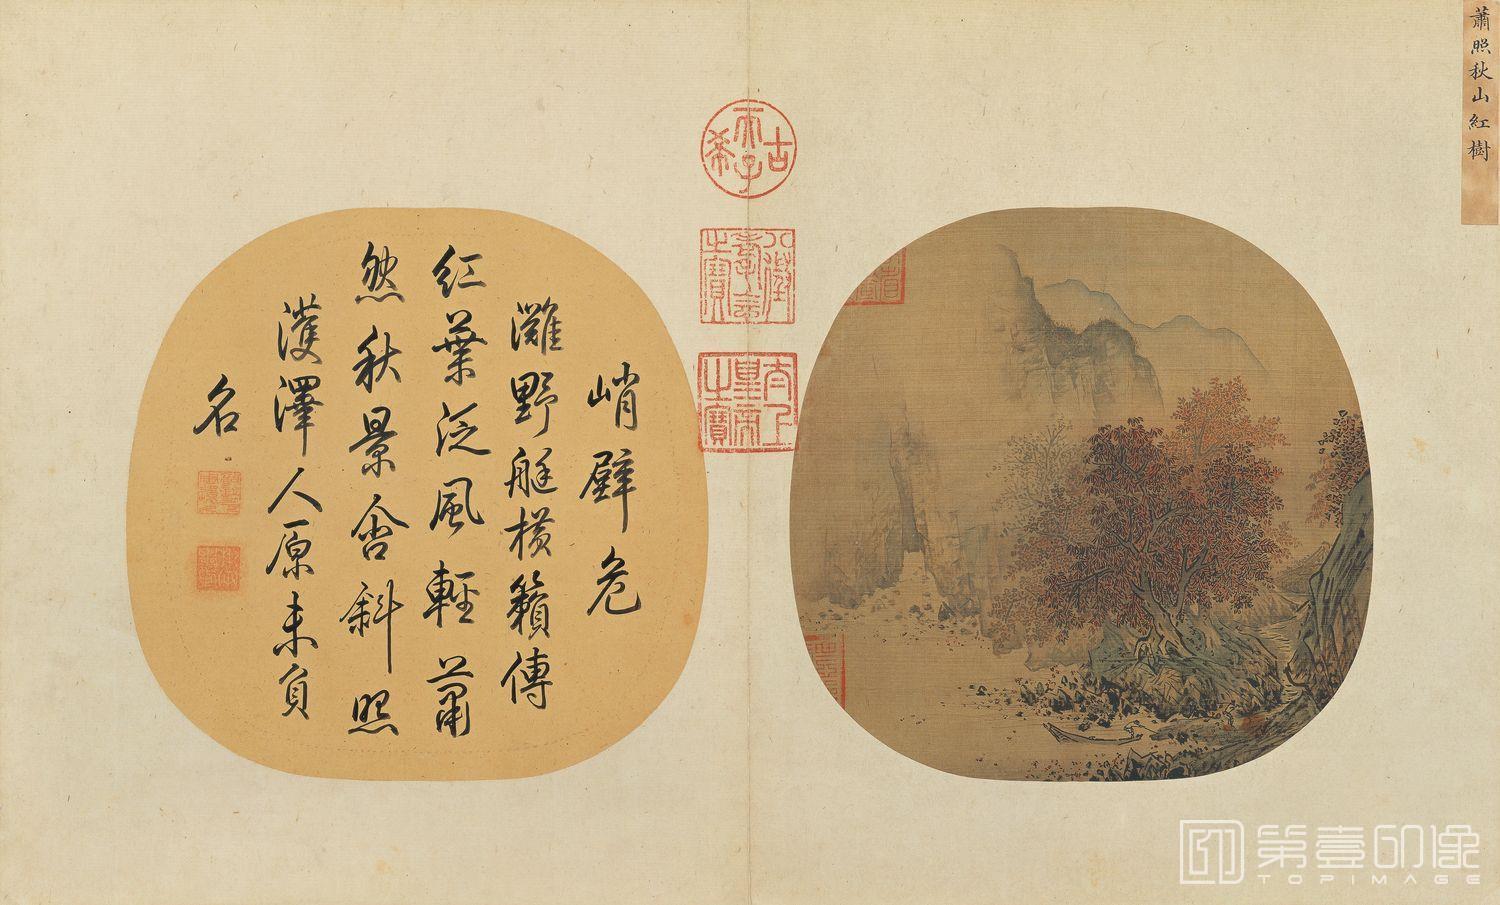 蕭照秋山紅樹
古希天子
八徵耄念之寶
太上皇帝之寶
峭壁危
灘野艇橫籟傳
紅葉泛風輕蕭
然秋景含斜照
濩澤人原未負
名
第壹印像
TOPIMAGE